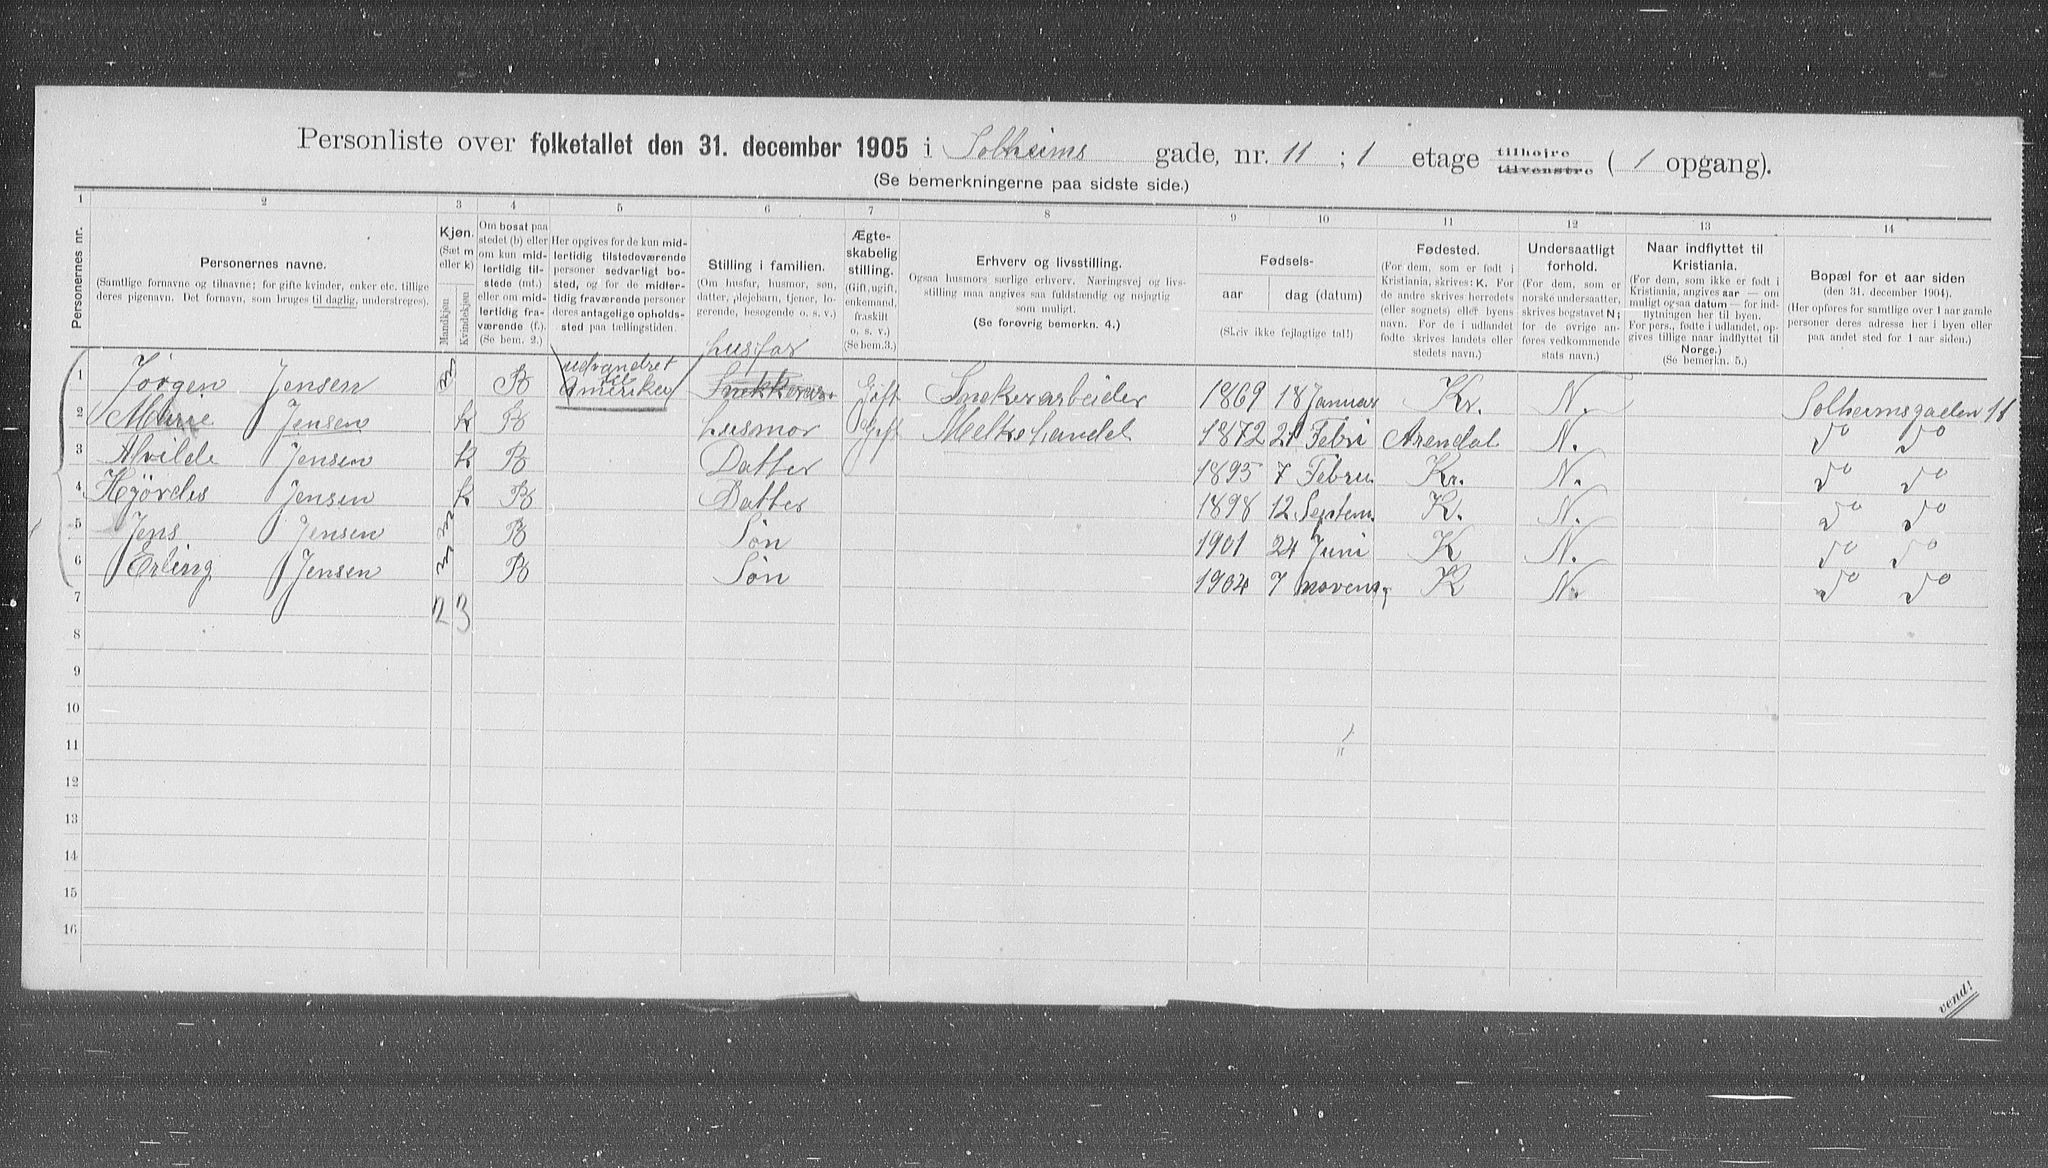 Personliste over folketallet den 31. december 1905 i Solheims gade, nr. 11 ; 1 etage tilhøjre tilvenstre ( 1 opgang).
(Se bemerkningerne paa sidste side.)
1 2 3 4 5 6 7 8 9 10 11 12 13 14
Personernes nr.
Personernes navne.
(Samtlige fornavne og tilnavne; for gifte kvinder, enker etc. tillige
deres pigenavn. Det fornavn, som bruges til daglig, understreges).
Kjøn.
(Sæt m
eller k)
Mandkjøn
Kvindekjøn
Om bosat paa
stedet (b) eller
om kun mid-
lertidig til-
stede (mt.)
eller om mid-
lertidig fra-
værende (f.).
(Se bem. 2.)
Her opgives for de kun mid-
lertidig tilstedeværende
personer sedvarligt bo-
sted, og for de midler-
tidig fraværende personer
deres antagelige opholds-
sted paa tællingstiden.
Stilling i familien.
(Om husfar, husmor, søn,
datter, plejebarn, tjener, lo-
gerende, besøgende o. s. v.)
Ægte-
skabelig
stilling.
(Gift, ugift,
enkemand,
fraskilt
o. s. v.)
(Se bem. 3.)
Erhverv og livsstilling.
Ogsaa husmors særlige erhverv. Næringsvej og livs-
stilling maa angives saa fuldstændig og nøjagtig
som muligt.
(Se forøvrig bemerkn. 4.)
Fødsels-
aar dag (datum)
(Skriv ikke fejlagtige tal!)
Fødested.
(For dem, som er født i
Kristiania, skrives: K. For
de andre skrives herredets
(eller sognets) eller byens
navn. For de i udlandet
fødte skrives landets eller
stedets navn.)
Undersaatligt
forhold.
(For dem, som er
norske undersaatter,
skrives bogstavet N;
for de øvrige an-
føres vedkommende
stats navn.)
Naar indflyttet til
Kristiania.
(For dem, som ikke er født i
Kristiania, angives aar — om
muligt ogsaa datum — for ind-
flytningen her til byen.
For pers., fødte i udlandet, op-
gives tillige naar indflyttet til
Norge.)
(Se bemerkn. 5.)
Bopæl for et aar siden
(den 31. december 1904).
(Her opføres for samtlige over 1 aar gamle
personer deres adresse her i byen eller
paa andet sted for 1 aar siden.)
1 Jørgen Jensen m B udvandret til Amerika husfar Snekker Gift Snekerarbeider 1869 18 Januar Kr. N. Solheimsgaden 11
2 Marie Jensen k B husmor Gift Melkehandel 1872 21 Febri Arendal N. do do
3 Alvilde Jensen k B Datter 1895 7 Febru. Kr. N. do do
4 Hjørdis Jensen k B Datter 1898 12 Septem. K. N. do do
5 Jens Jensen m B Søn 1901 24 Juni K N. do do
6 Erling Jensen m B Søn 1904 7 novem. K N. do do
7 2 3
8
9
10
11
12
13
14
15
16
vend!